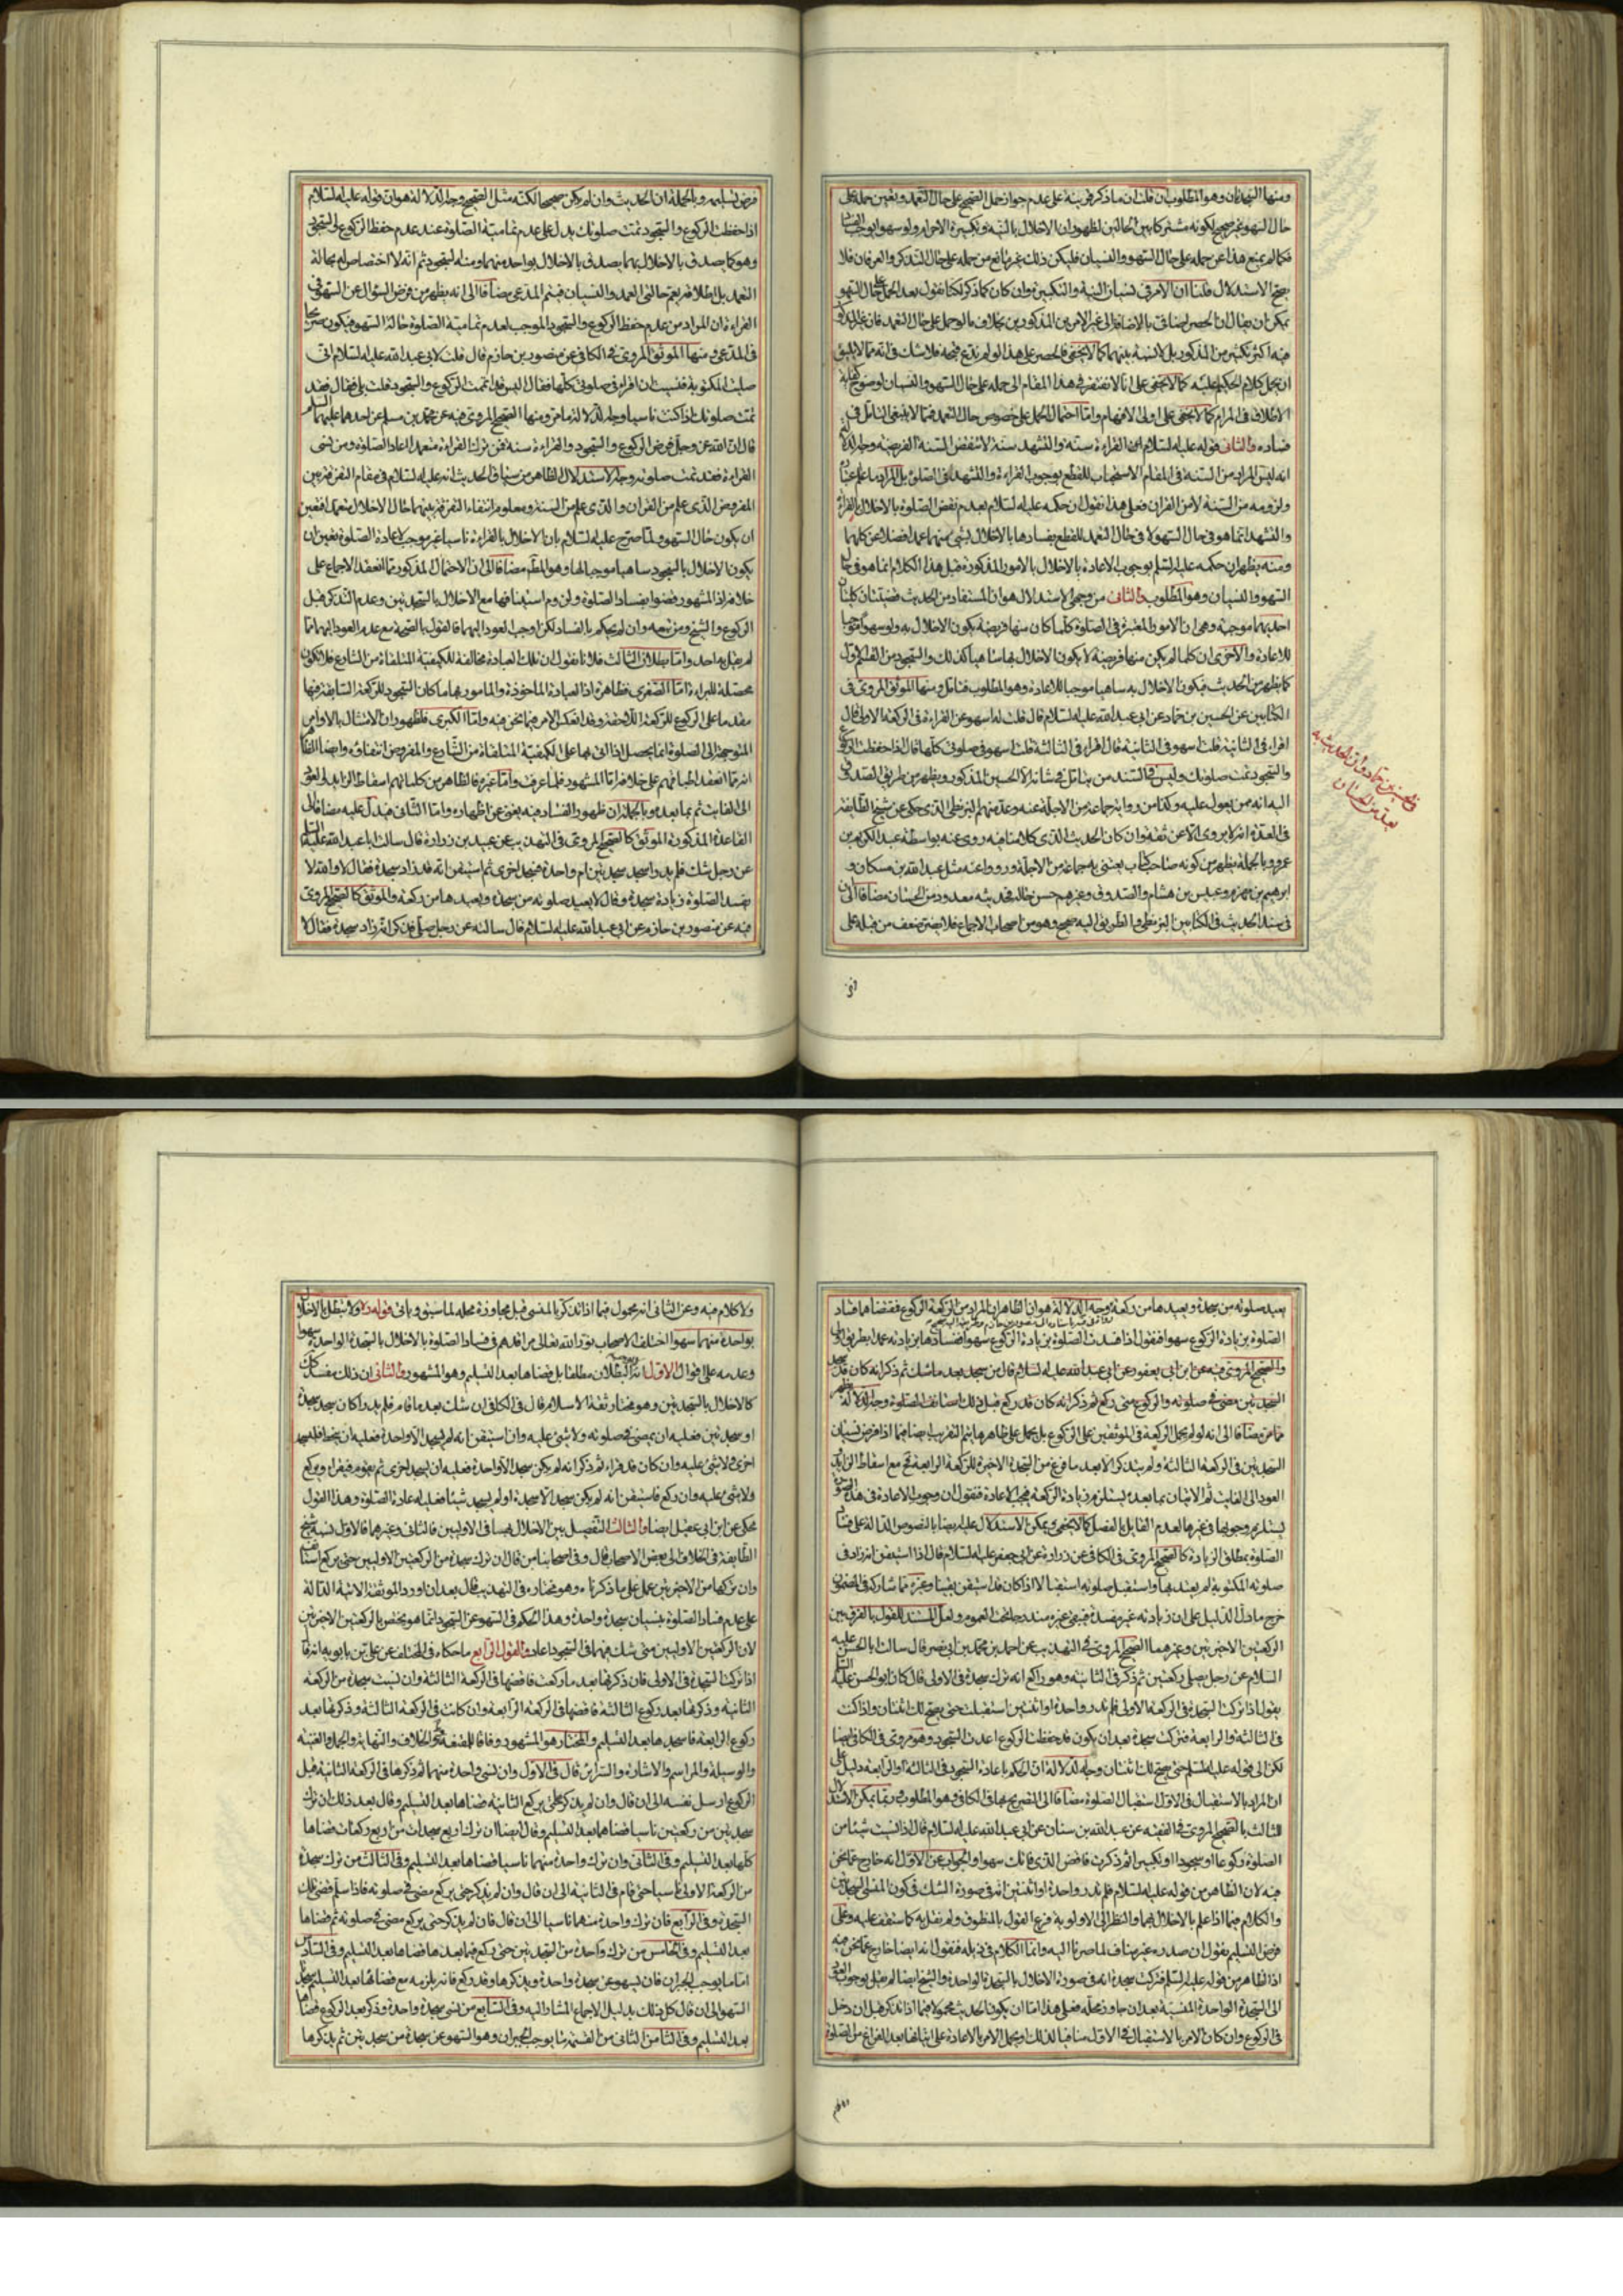 ومنها السجدتان وهو المطلوب فان قلت ان ما ذكر قرينة على عدم جواز حمل الصحيح على حال التعمد وتعين حمله على
حال السهو غير صحيح لكونه مشتركا بين الحالين لظهور ان الاخلال بالنية وتكبيرة الاحرام ولو سهوا يوجب
فكما لم يمنع هذا عن حمله على حال السهو والنسيان فليكن ذلك غير مانع من حمله على حال التذكر والعرفان فلا
يصح الاستدلال قلنا ان الامر في نسيان النية والتكبير وان كان كما ذكر لكنا نقول بعد الحمل على حال السهو
يمكن ان يقال ان الحصر اضافي بالاضافة الى غير الامرين المذكورين بخلاف ما لو حمل على حال التعمد فان غير المذكور
فيه اكثر بكثير من المذكور بل لا نسبة بينهما كما لا يخفى فالحصر على هذا لو لم ندع قبحه فلا شك في انه مما لا يليق
ان يحمل كلام الحكيم عليه كما لا يخفى على انا لا نفتقر في هذا المقام الى حمله على حال السهو والنسيان لوضوح كفاية
الاطلاق في المرام كما لا يخفى على اولى الافهام واما احتمال الحمل على خصوص حال التعمد فمما لا ينبغي التامل في
فساده والثاني قوله عليه السلام القراءة سنة والتشهد سنة لا تنقض السنة الفريضة وجه الدلالة
انه ليس المراد من السنة في المقام الاستحباب للقطع بوجوب القراءة والتشهد في الصلوة بل المراد ما علم
ولزومه من السنة لا من القران فعلى هذا نقول ان حكمه عليه السلام بعدم نقض الصلوة بالاخلال بالقراءة
والتشهد انما هو في حال السهو لا في حال التعمد للقطع بفسادها بالاخلال بشئ منهما عمدا فضلا عن كليهما
ومنه يظهر ان حكمه عليه السلام بوجوب الاعادة بالاخلال بالامور المذكورة قبل هذا الكلام انما هو في حال
السهو والنسيان وهو المطلوب والثاني من وجهي الاستدلال هو ان المستفاد من الحديث قضيتان كليتان
احديهما موجبة وهي ان الامور المعتبرة في الصلوة كلما كان منها فريضة يكون الاخلال به ولو سهوا موجبا
للاعادة والاخرى ان كلما لم يكن منها فريضة لا يكون الاخلال بها ساهيا كذلك والسجود من القسم الاول
كما يظهر من الحديث فيكون الاخلال به ساهيا موجبا للاعادة وهو المطلوب فتامل ومنها الموثق المروي في
الكتابين عن الحسين بن حماد عن ابي عبد الله عليه السلام قال قلت له اسهو عن القراءة في الركعة الاولى قال
اقرا في الثانية قلت اسهو في الثانية قال اقرا في الثالثة قلت اسهو في صلوتي كلها قال اذا حفظت الركوع
والسجود تمت صلوتك وليس في السند من يتامل في شانه الا الحسين المذكور ويظهر من طريق الصدوق
اليه انه ممن يعول عليه وكذا من رواية جماعة من الاجلة عنه وعد منهم البزنطي الذي حكى عن شيخ الطائفة
في العدة انه لا يروي الا عن ثقة وان كان الحديث الذي كلامنا فيه روى عنه بواسطة عبد الكريم بن
عمرو وبالجملة يظهر من كونه صاحب كتاب يعتني به جماعة من الاجلة ورووا عنه مثل عبد الله بن مسكان و
ابراهيم بن مهزم وعبيس بن هشام والصدوق وغيرهم حسن حاله فحديثه معدود من الحسان مضافا الى ان
في سند الحديث في الكتابين البزنطي والطريق اليه صحيح وهو من اصحاب الاجماع فلا يضر ضعف من قبله على
فرض تسليمه وبالجملة ان الحديث وان لم يكن صحيحا لكنه مثل الصحيح وجه الدلالة هو ان قوله عليه السلام
اذا حفظت الركوع والسجود تمت صلوتك يدل على عدم تمامية الصلوة عند عدم حفظ الركوع والسجود
وهو كما يصدق بالاخلال بهما يصدق بالاخلال بواحد منهما ومنه السجود ثم انه لا اختصاص له بحالة
التعمد بل اطلاقه يعم حالتي العمد والنسيان فيتم المدعى مضافا الى انه يظهر من فرض السؤال عن السهو في
القراءة ان المراد من عدم حفظ الركوع والسجود الموجب لعدم تمامية الصلوة حالة السهو فيكون صريحا
في المدعى ومنها الموثق المروي في الكافي عن منصور بن حازم قال قلت لابي عبد الله عليه السلام اني
صليت المكتوبة فنسيت ان اقرا في صلوتي كلها فقال اليس قد اتممت الركوع والسجود قلت بلى فقال فقد
تمت صلوتك اذا كنت ناسيا وجه الدلالة ما مر ومنها الصحيح المروي فيه عن محمد بن مسلم عن احدهما عليهما السلام
قال ان الله عز وجل فرض الركوع والسجود والقراءة سنة فمن ترك القراءة متعمدا اعاد الصلوة ومن نسى
القراءة فقد تمت صلوته وجه الاستدلال الظاهر من سياق الحديث انه عليه السلام في مقام التفرقة بين
المفروض الذي علم من القران والذي علم من السنة ومعلوم انتفاء التفرقة بينهما حال الاخلال متعمدا فتعين
ان يكون حال السهو ولما صرح عليه السلام بان الاخلال بالقراءة ناسيا غير موجب لاعادة الصلوة تعين ان
يكون الاخلال بالسجود ساهيا موجبا لها وهو المط مضافا الى ان الاحتمال المذكور مما انعقد الاجماع على
خلافه اذ المشهور قضوا بفساد الصلوة ولزوم استينافها مع الاخلال بالسجدتين وعدم التذكر قبل
الركوع والشيخ ومن تبعه وان لم يحكم بالفساد لكن اوجب العود اليهما فالقول بالصحة مع عدم العود اليهما مما
لم يقل به احد واما بطلان الثالث فلانا نقول ان تلك العبادة مخالفة للكيفية المتلقاة من الشارع فلا تكون
محصلة للبراءة اما الصغرى فظاهرة اذ العبادة الماخوذة والمامور بها ما كان السجود للركعة السابقة فيها
مقدما على الركوع للركعة اللاحقة وقد انعكس الامر فيما نحن فيه واما الكبرى فلظهور ان الامتثال بالاوامر
المتوجهة الى الصلوة انما يحصل اذا اتى بها على الكيفية المتلقاة من الشارع والمفروض انتفاؤه وايضا الظاهر
انه مما انعقد اطباقهم على خلافه اما المشهور فلما عرفت واما غيره فالظاهر من كلماتهم اسقاط الزايد
الى الفائت ثم بما بعده وبالجملة ان ظهور الفساد فيه يغني عن اظهاره واما الثاني فيدل عليه مضافا الى
القاعدة المذكورة الموثق كالصحيح المروي في التهذيب عن عبيد بن زرارة قال سالت ابا عبد الله عليه السلام
عن رجل شك فلم يدر اسجد سجدتين ام واحدة فسجد اخرى ثم استيقن انه قد زاد سجدة فقال لا والله لا
يفسد الصلوة زيادة سجدة وقال لا يعيد صلوته من سجدة ويعيدها من ركعة والموثق كالصحيح المروي
فيه عن منصور بن حازم عن ابي عبد الله عليه السلام قال سالته عن رجل صلى فذكر انه زاد سجدة فقال لا
يعيد صلوته من سجدة ويعيدها من ركعة وجه الدلالة هو ان الظاهر ان المراد من الركعة الركوع فمقتضاهما فساد
الصلوة بزيادة الركوع سهوا فنقول اذا فسدت الصلوة بزيادة الركوع سهوا ففسادها بزيادته عمدا بطريق اولى
والصحيح المروي فيه عن ابن ابي يعفور عن ابي عبد الله عليه السلام قال من سجد بعد ما شك ثم ذكر انه كان قد سجد
السجدتين مضى في صلوته والركوع متى ركع ثم ذكر انه كان قد ركع قبل ذلك استانف الصلوة وجه الدلالة يظهر
مما مر مضافا الى انه لو لم يحمل الركعة في الموثقين على الركوع بل حمل على ظاهرها يتم التقريب ايضا فيما اذا فرض نسيان
السجدتين في الركعة الثالثة ولم يتذكر الا بعد ما فرغ من السجدة الاخيرة للركعة الرابعة فح مع اسقاط الزايد
العود الى الفايت ثم الاتيان بما بعده يستلزم زيادة الركعة فيجب الاعادة فنقول ان وجوب الاعادة في هذه الصورة
يستلزم وجوبها في غيرها لعدم القايل بالفصل كما لا يخفى ويمكن الاستدلال عليه ايضا بالنصوص الدالة على فساد
الصلوة بمطلق الزيادة كالصحيح المروي في الكافي عن زرارة عن ابي جعفر عليه السلام قال اذا استيقن انه زاد في
صلوته المكتوبة لم يعتد بها واستقبل صلوته استقبالا اذا كان قد استيقن يقينا وغيره مما شاركه في المضمون
خرج ما دل الدليل على ان زيادته غير مفسدة فبقي غيره مندرجا تحت العموم ولعل المستند للقول بالفرق بين
الركعتين الاخيرتين وغيرهما الصحيح المروي في التهذيب عن احمد بن محمد بن ابي نصر قال سالت ابا الحسن عليه
السلام عن رجل يصلي ركعتين ثم ذكر في الثانية وهو راكع انه ترك سجدة في الاولى قال كان ابو الحسن عليه السلام
يقول اذا تركت السجدة في الركعة الاولى فلم تدر واحدة او اثنتين استقبلت حتى يصح لك اثنتان واذا كنت
في الثالثة والرابعة فتركت سجدة بعد ان يكون قد حفظت الركوع اعدت السجود وهو مروي في الكافي ايضا
لكن الى قوله عليه السلام حتى يصح لك اثنتان وجه الدلالة ان الحكم باعادة السجود في الثالثة او الرابعة دليل على
ان المراد بالاستقبال في الاول استقبال الصلوة مضافا الى التصريح بها في الكافي وهو المطلوب وربما يمكن الاستدلال
للثالث بالصحيح المروي في الفقيه عن عبد الله بن سنان عن ابي عبد الله عليه السلام قال اذا نسيت شيئا من
الصلوة ركوعا او سجودا او تكبيرا ثم ذكرت فاقض الذي فاتك سهوا والجواب عن الاول انه خارج عما نحن
فيه لان الظاهر من قوله عليه السلام فلم تدر واحدة او اثنتين انه في صورة الشك في كون المنسي السجدتين
والكلام فيما اذا علم بالاخلال بهما والنظر الى الاولوية فرع القول بالمنطوق ولم نقل به كما ستقف عليه وعلى
فرض التسليم نقول ان صدره غير مناف لما صرنا اليه وانما الكلام في ذيله فنقول انه ايضا خارج عما نحن فيه
اذ الظاهر من قوله عليه السلام فتركت سجدة انه في صورة الاخلال بالسجدة الواحدة والشيخ ايضا لم يقل بوجوب العود
الى السجدة الواحدة المنسية بعد ان جاوز محله فعلى هذا اما ان يكون الحديث محمولا فيما اذا تذكر قبل ان دخل
في الركوع وان كان الامر بالاستقبال في الاول منافيا لذلك او يحمل الامر بالاعادة على اتيانها بعد الفراغ من الصلوة
ولا كلام فيه وعن الثاني انه محمول فيما اذا تذكر بالمنسي قبل مجاوزة محله لما سبق وياتي قوله ولا تبطل بالاخلال
بواحدة منهما سهوا اختلف الاصحاب نور الله تعالى مراقدهم في فساد الصلوة بالاخلال بالسجدة الواحدة سهوا
وعدمه على اقوال الاول عدم البطلان مطلقا بل قضاها بعد التسليم وهو المشهور والثاني ان ذلك مفسد كذلك
كالاخلال بالسجدتين وهو مختار ثقة الاسلام قال في الكافي ان شك بعد ما قام فلم يدر اكان سجد سجدة
او سجدتين فعليه ان يمضي في صلوته ولا شئ عليه وان استيقن انه لم يسجد الا واحدة فعليه ان ينحط فليسجد
اخرى ولا شئ عليه وان كان قد قراء ثم ذكر انه لم يكن سجد الا واحدة فعليه ان يسجد اخرى ثم يقوم فيقرا ويركع
ولا شئ عليه وان ركع فاستيقن انه لم يكن سجد الا سجدة او لم يسجد شيئا فعليه اعادة الصلوة وهذا القول
محكي عن ابن ابي عقيل ايضا والثالث التفصيل بين الاخلال بها في الاوليين فالثاني وغيرهما فالاول نسبه شيخ
الطائفة في الخلاف الى بعض الاصحاب قال وفي اصحابنا من قال ان ترك سجدة من الركعتين الاوليين حتى يركع استانف
وان تركها من الاخيرتين عمل على ما ذكرناه وهو مختاره في التهذيب قال بعد ان اورد الموثقة الاتية الدالة
على عدم فساد الصلوة بنسيان سجدة واحدة وهذا الحكم في السهو عن السجود انما هو مختص بالركعتين الاخيرتين
لان الركعتين الاوليين متى شك فيهما في السجود اعاد والقول الرابع ما حكاه في المختلف عن علي بن بابويه انه قال
اذا تركت السجدة في الاولى فان ذكرتها بعد ما ركعت فاقضها في الركعة الثالثة وان نسيت سجدة من الركعة
الثانية وذكرتها بعد ركوع الثالثة فاقضها في الركعة الرابعة وان كانت في الركعة الثالثة وذكرتها بعد
ركوع الرابعة فاسجدها بعد التسليم والمختار هو المشهور وفاقا للمقنعة والخلاف والنهاية والجمل والغنية
والوسيلة والمراسم والاشارة والسراير قال في الاول وان نسي واحدة منهما ثم ذكرها في الركعة الثانية قبل
الركوع ارسل نفسه الى ان قال وان لم يذكر حتى يركع الثانية قضاها بعد التسليم وقال بعد ذلك ان ترك
سجدتين من ركعتين ناسيا قضاهما بعد التسليم وقال ايضا ان ترك اربع سجدات من اربع ركعات قضاها
كلها بعد التسليم وفي الثاني وان ترك واحدة منهما ناسيا قضاها بعد التسليم وفي الثالث من ترك سجدة
من الركعة الاولى ناسيا حتى قام في الثانية الى ان قال وان لم يذكر حتى يركع مضى في صلوته فاذا سلم قضى تلك
السجدة وفي الرابع فان ترك واحدة منهما ناسيا الى ان قال فان لم يذكر حتى يركع مضى في صلوته ثم قضاها
بعد التسليم وفي الخامس من ترك واحدة من السجدتين حتى ركع فيما بعدها قضاها بعد التسليم وفي السادس
اما ما يوجب الجبران فان يسهو عن سجدة واحدة ويذكرها وقد ركع فانه يلزمه مع قضائها بعد التسليم سجدتا
السهو الى ان قال كل ذلك بدليل الاجماع المشار اليه وفي السابع من نسي سجدة واحدة وذكر بعد الركوع قضاها
بعد التسليم وفي الثامن الثاني من القسمة ما يوجب الجبران وهو السهو عن سجدة من سجدتين ثم يذكرها